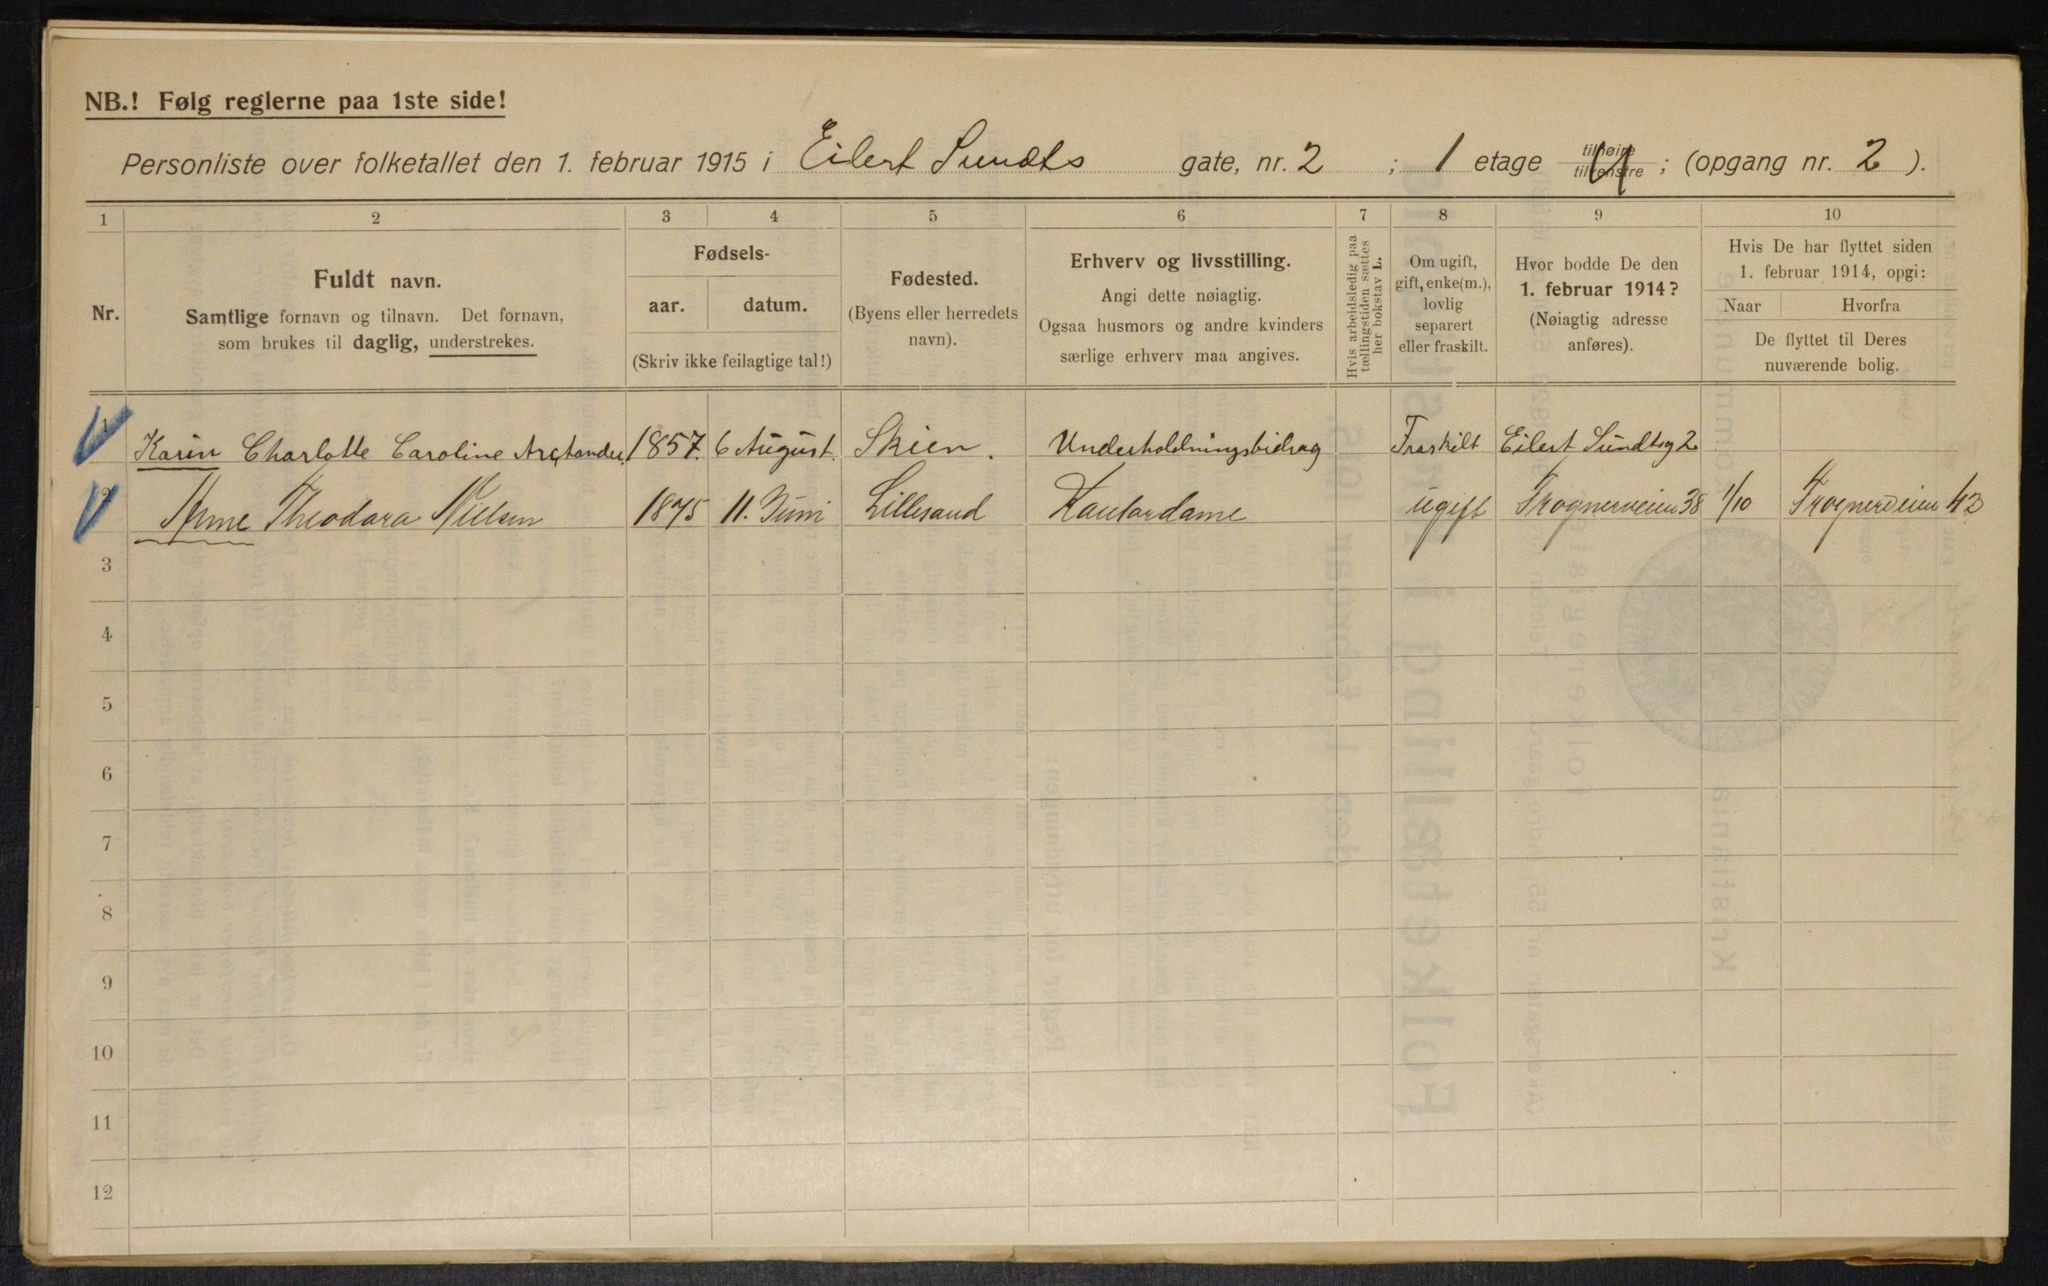 NB.! Følg reglerne paa 1ste side!
Personliste over folketallet den 1. februar 1915 i Eilert Sundts gate, nr. 2 ; 1 etage tilhøire tilvenstre ; (opgang nr. 2 ).
1 2 3 4 5 6 7 8 9 10
Nr.
Fuldt navn.
Samtlige fornavn og tilnavn. Det fornavn,
som brukes til daglig, understrekes.
Fødsels-
aar. datum.
(Skriv ikke feilagtige tal!)
Fødested.
(Byens eller herredets
navn).
Erhverv og livsstilling.
Angi dette nøiagtig.
Ogsaa husmors og andre kvinders
særlige erhverv maa angives.
Hvis arbeidsledig paa
tællingstiden sættes
her bokstav L.
Om ugift,
gift, enke(m.),
lovlig
separert
eller fraskilt.
Hvor bodde De den
1. februar 1914?
(Nøiagtig adresse
anføres).
Hvis De har flyttet siden
1. februar 1914, opgi:
Naar Hvorfra
De flyttet til Deres
nuværende bolig.
1 Karin Charlotte Caroline Arctander 1857. 6 August. Skien. Underholdningsbidrag Fraskilt Eilert Sundtsg 2
2 Anne Theodora Nielsen 1875 11. Juni Lillesand Kontordame ugift Frognerveien 38 1/10 Frognerveien 42
3
4
5
6
7
8
9
10
11
12